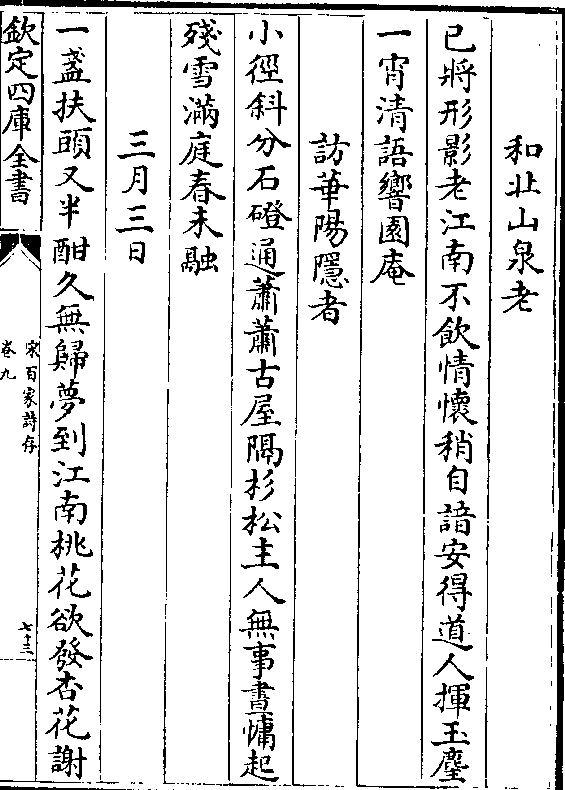 和北山泉老
已將形影老江南不飲情懷稍自諳安得道人揮玉麈
一宵清語響園庵
訪華陽隱者
小徑斜分石磴通蕭蕭古屋隔杉松主人無事晝慵起
殘雪滿庭春未融
三月三日
一盞扶頭又半酣久無歸夢到江南桃花欲發杏花謝
欽定四庫全書
宋百家詩存
卷九
七十三